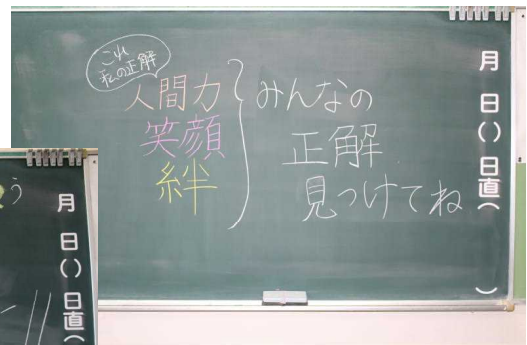 これ
私の正解
人間力
笑顔
絆
みんなの
正解
見つけてね
月
日()
日直(
)
う
月
日()
日直(